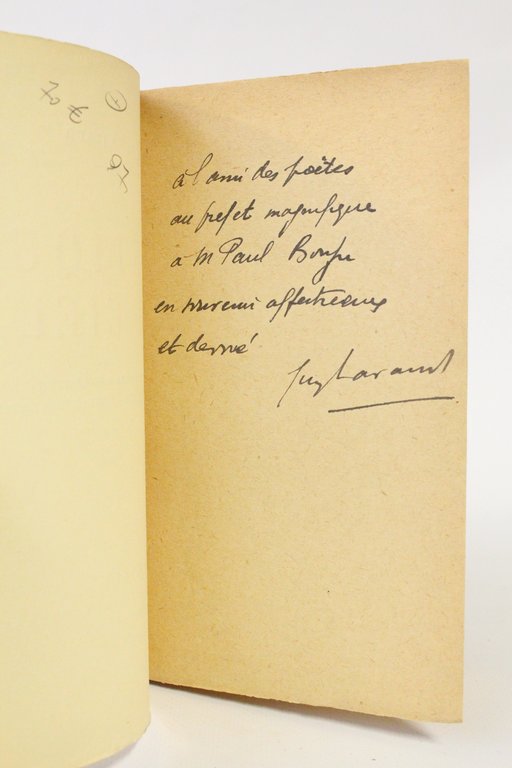 70 €
à l'ami des poètes
au préfet magnifique
à M Paul
en souvenir affectueux
et
Guy Lavaud